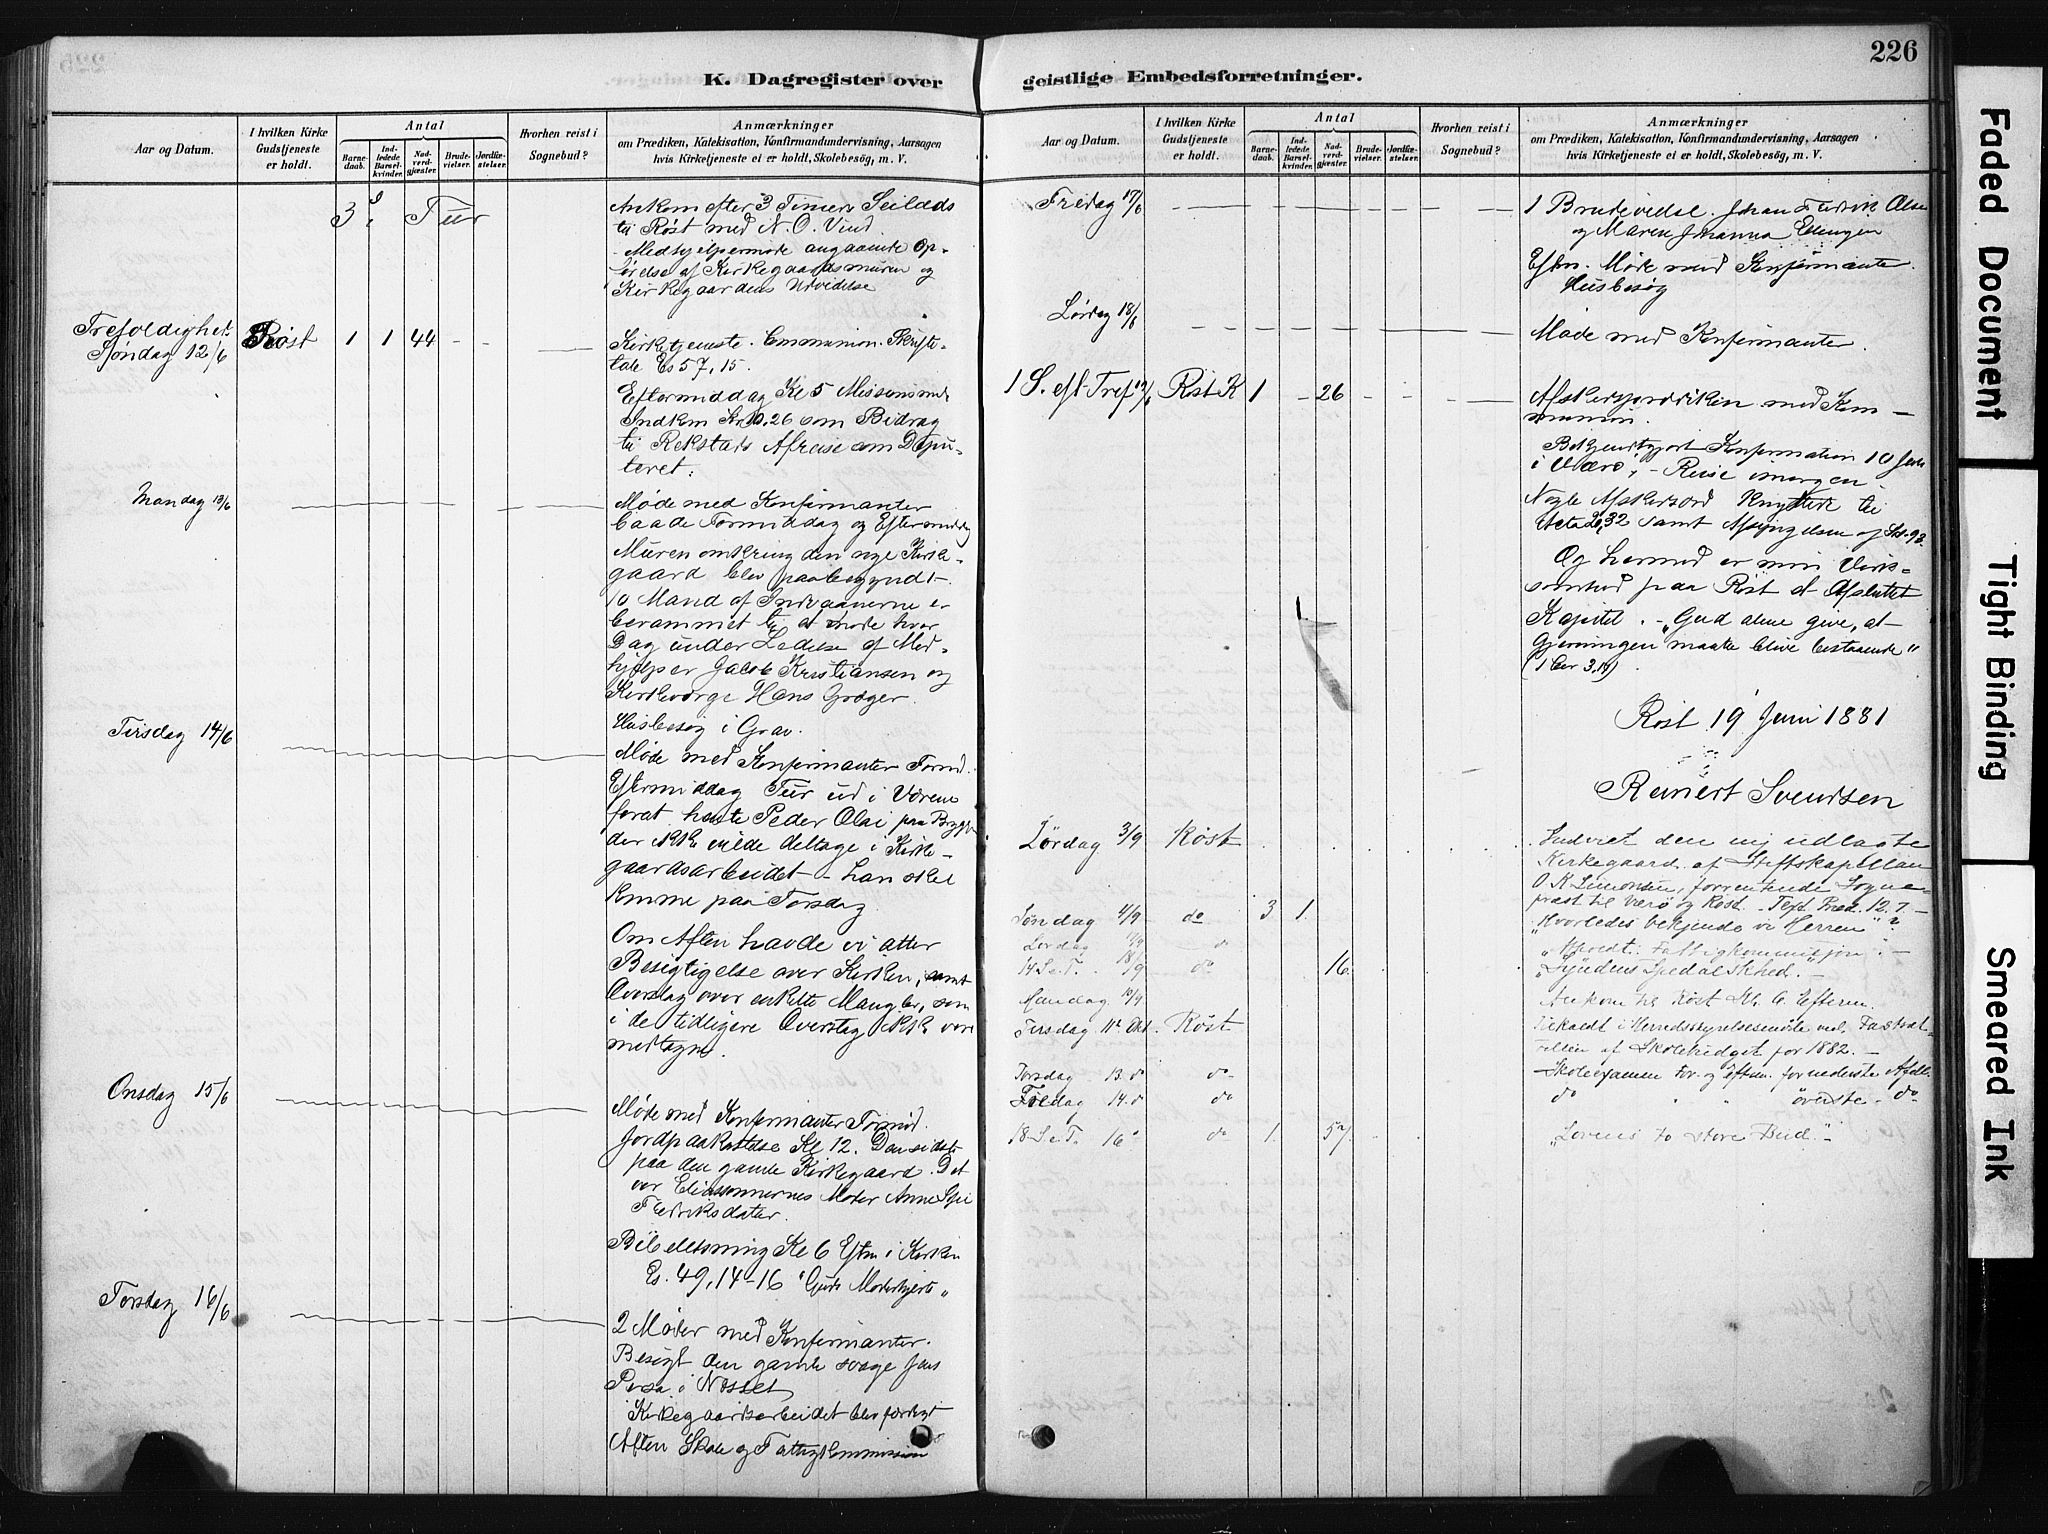 226
K. Dagregister over
geistlige Embedsforretninger.
Aar og Datum.
I hvilken Kirke Gudstjeneste er holdt.
Antal
Barnedaab.
Indledede Barselkvinder.
Nadverdgjæster.
Brudevielser.
Jordfæstelser.
Hvorhen reist i Sognebud?
Anmærkninger
om Prædiken, Katekisation, Konfirmandundervisning, Aarsagen
hvis Kirketjeneste ei er holdt, Skolebesög, m. V.
3 Tur
Ankom efter 3 Timers Seilads
til Røst med N.O. Vind.
Medhjelpermøde angaaende Op-
førelse af Kirkegaardsmuren og
Kirkegaardens Udvidelse
Trefoldighets
Søndag 12/6 Røst 1 1 44 - -
Kirketjeneste. Communion. Skrifte-
tale Es 57, 15.
Eftermiddag Kl 5
Indkom Kr 10,26 som Bidrag
til Rekstads Afreise som Depu-
teret.
Mandag 13/6
Møde med Konfirmanter
baade Formiddag og Eftermiddag
Muren omkring den nye Kirke-
gaard blev paabegyndt
10 Mand af Indvaanerne er
berammet til at møde hver
Dag under Ledelse af Med-
hjelper Jacob Kristiansen og
Kirkeværge Hans Grøger.
Husbesøg i Grav.
Tirsdag 14/6
Møde med Konfirmanter Formd.
Eftermiddag Tur ud i
forat hente Peder Olai paa
der ikke vilde deltage i Kirke-
gaardsarbeidet - han skal
komme paa Torsdag
Om Aften havde vi atter
Besigtigelse over Kirken, samt
Overslag over enkelte Mangler, som
i de tidligere Overslag ikke vare
medtagne.
Onsdag 15/6
Møde med Konfirmanter Formd.
Jordpaakastelse Kl 12. Den sidste
paa den gamle Kirkegaard. Det
var Eliassønnernes Moder Anne
Fredriksdatter.
Bibellæsning Kl 6 Eftm i Kirken
Es. 49, 14-16 "Guds Moderhjerte"
Torsdag 16/6
2 Møder med Konfirmanter.
Besøgt den gamle svage Jens
i Næsset
Kirkegaardsarbeidet blev færdigt
Aften Skole og Fattigkommission
Aar og Datum.
I hvilken Kirke Gudstjeneste er holdt.
Antal
Barnedaab.
Indledede Barselkvinder.
Nadverdgjæster.
Brudevielser.
Jordfæstelser.
Hvorhen reist i Sognebud?
Anmærkninger
om Prædiken, Katekisation, Konfirmandundervisning, Aarsagen
hvis Kirketjeneste ei er holdt, Skolebesög, m. V.
Fredag 17/6
1 Brudevielse. Johan Fredrik Olsen
og Maren Johanna
Eftm. Møde med Konfirmanter.
Husbesøg
Lørdag 18/6
Møde med Konfirmanter.
1 S. eft Tref 19/6 Røst K 1 - 26
Afskedsprædiken med Kom-
munion.
Bekjendtgjort Konfirmation 10 Juli
i Værø. - Reise imorgen
Nogle Afskedsord knyttede til
Acta 20,32 samt Afsyngelsen af
Og hermed er min Virk-
somhed paa Røst et Afsluttet
Kapitel. - "Gud alene give, at
Gjerningen maatte blive bestaaende"
(1 Cor 3.14).
Røst 19 Juni 1881
Reinert Svendsen
Lørdag 3/9 Røst
Indviet den ny udlagte
Kirkegaard af Stiftskapellan
O K Simonsen, forrettende Sogne-
præst til Værø og Røst. Text Præd. 12.7. -
Søndag 4/9 do 3 1
"Hvorledes bekjende vi Herren"?
Lørdag do
Afholdt Fattigkommission. -
14 S.e.T. 18/9 do 16
"Syndens Spedalskhed." -
Mandag 10/9
Ankom til Røst Kl. 6 Efterm.
Tirsdag 11te Okt. Røst
i Herredsstyrelsesmøde ved Fastsæt-
telsen af Skolebudget for 1882. -
Torsdag 13. d do
Skoleexamen For. og Eftm. for nederste Afdl.
Fredag 14. d do
do " " øverste. do
18. S.e.T. 16 do 1. 57
"Lovens to store Bud." -
Faded Document
Tight Binding
Smeared Ink